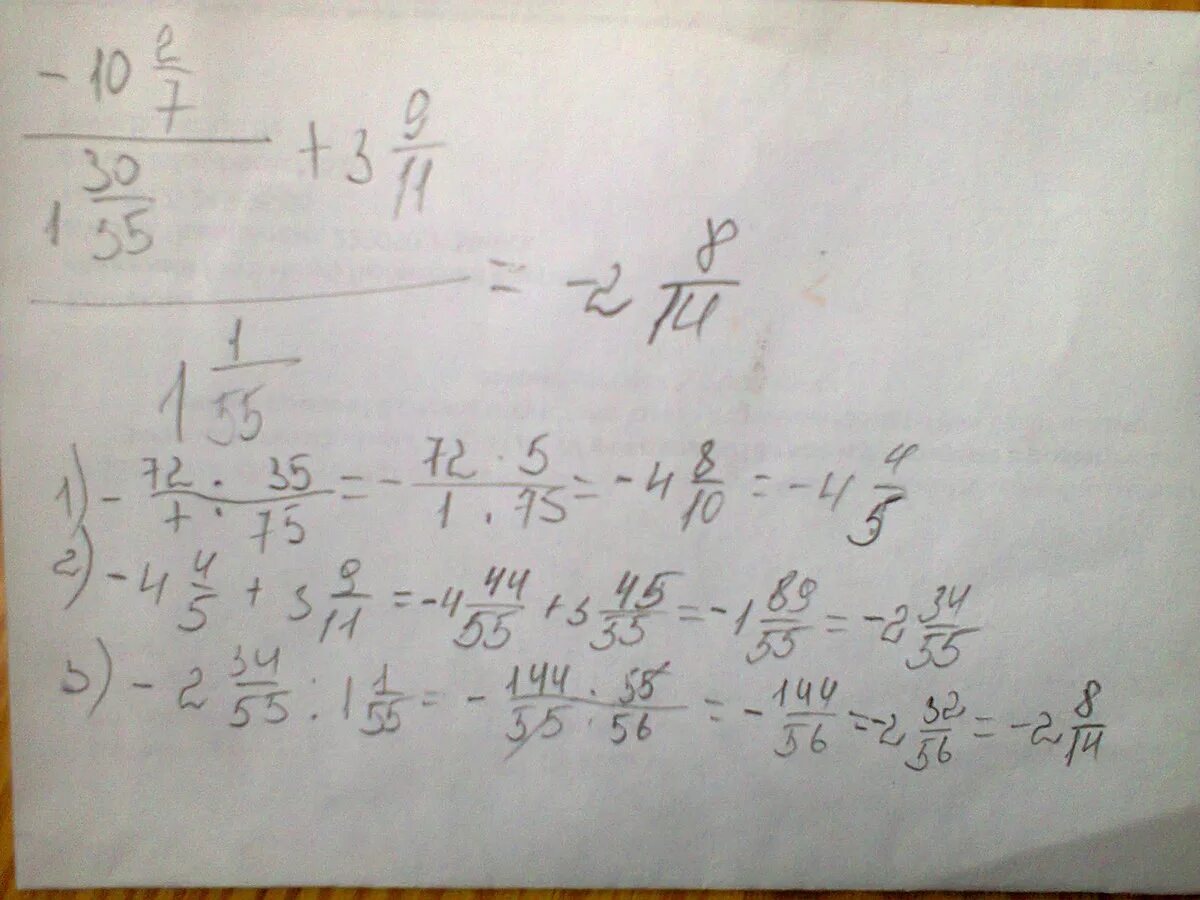 -10 2/7
1 30/35 + 3 9/11
1 1/55 = -2 8/14
1) - 72 · 35 / 7 · 75 = - 72 · 5 / 1 · 75 = -4 8/10 = -4 4/5
2) -4 4/5 + 3 9/11 = -4 44/55 + 3 45/55 = -1 89/55 = -2 34/55
3) - 2 34/55 : 1 1/55 = - 144 · 55 / 55 · 56 = - 144/56 = -2 32/56 = -2 8/14